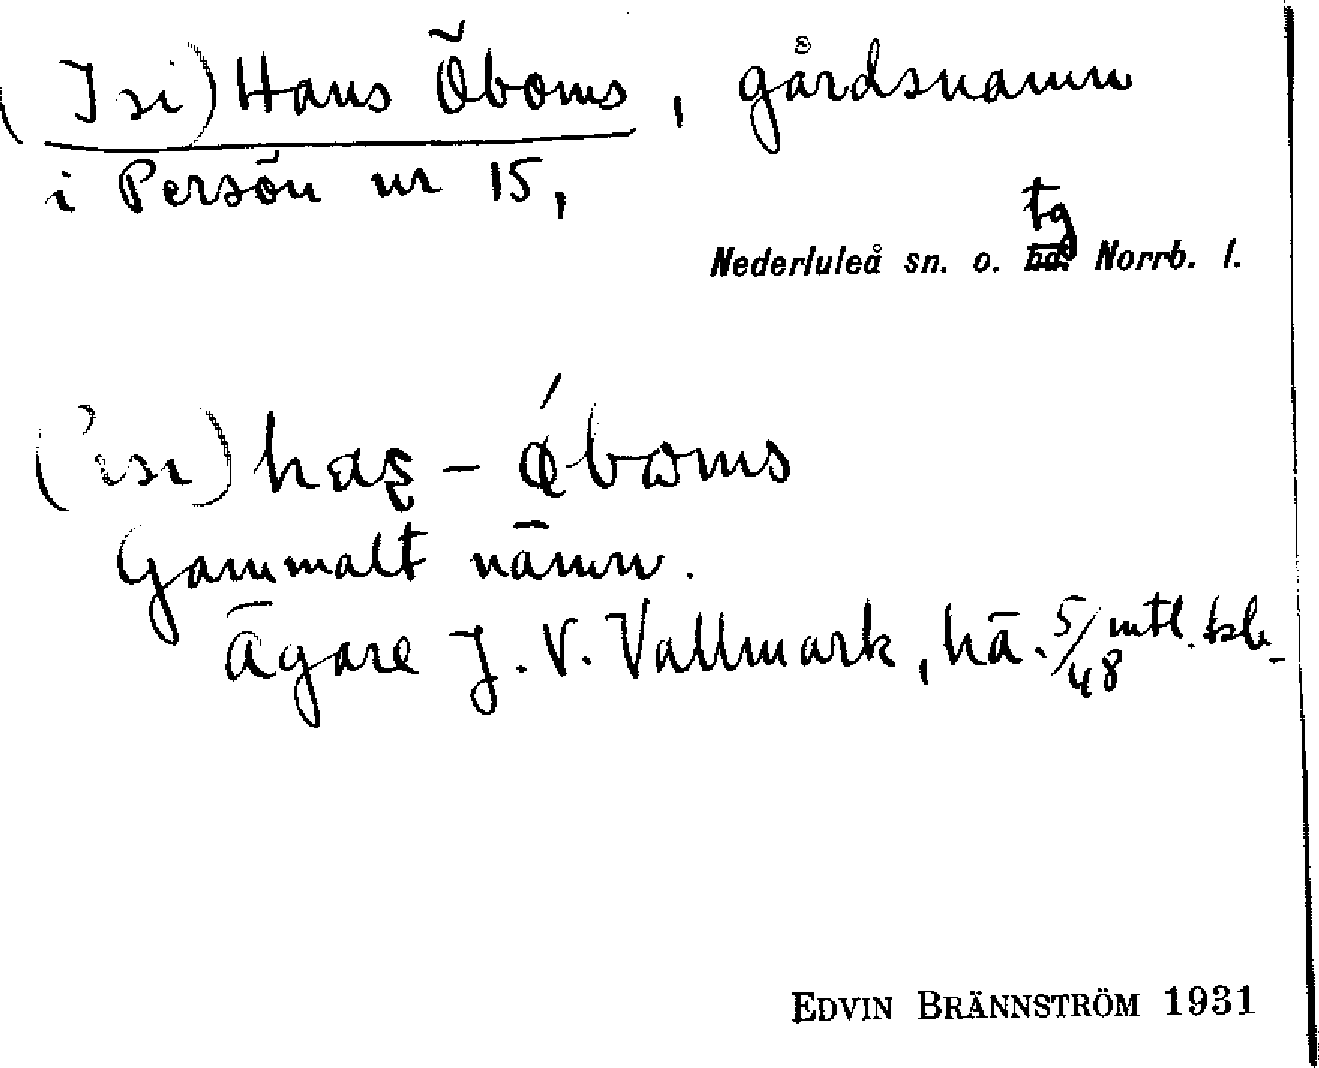 (Isi) Hans Öboms, gårdsnamn
i Persön nr 15,
tg
Nederluleå sn. o. Norrb. l.
Gammalt nämn.
Ägare J. V. Vallmark, hä. 5/48 mtl. skb.
EDVIN BRÄNNSTRÖM 1931